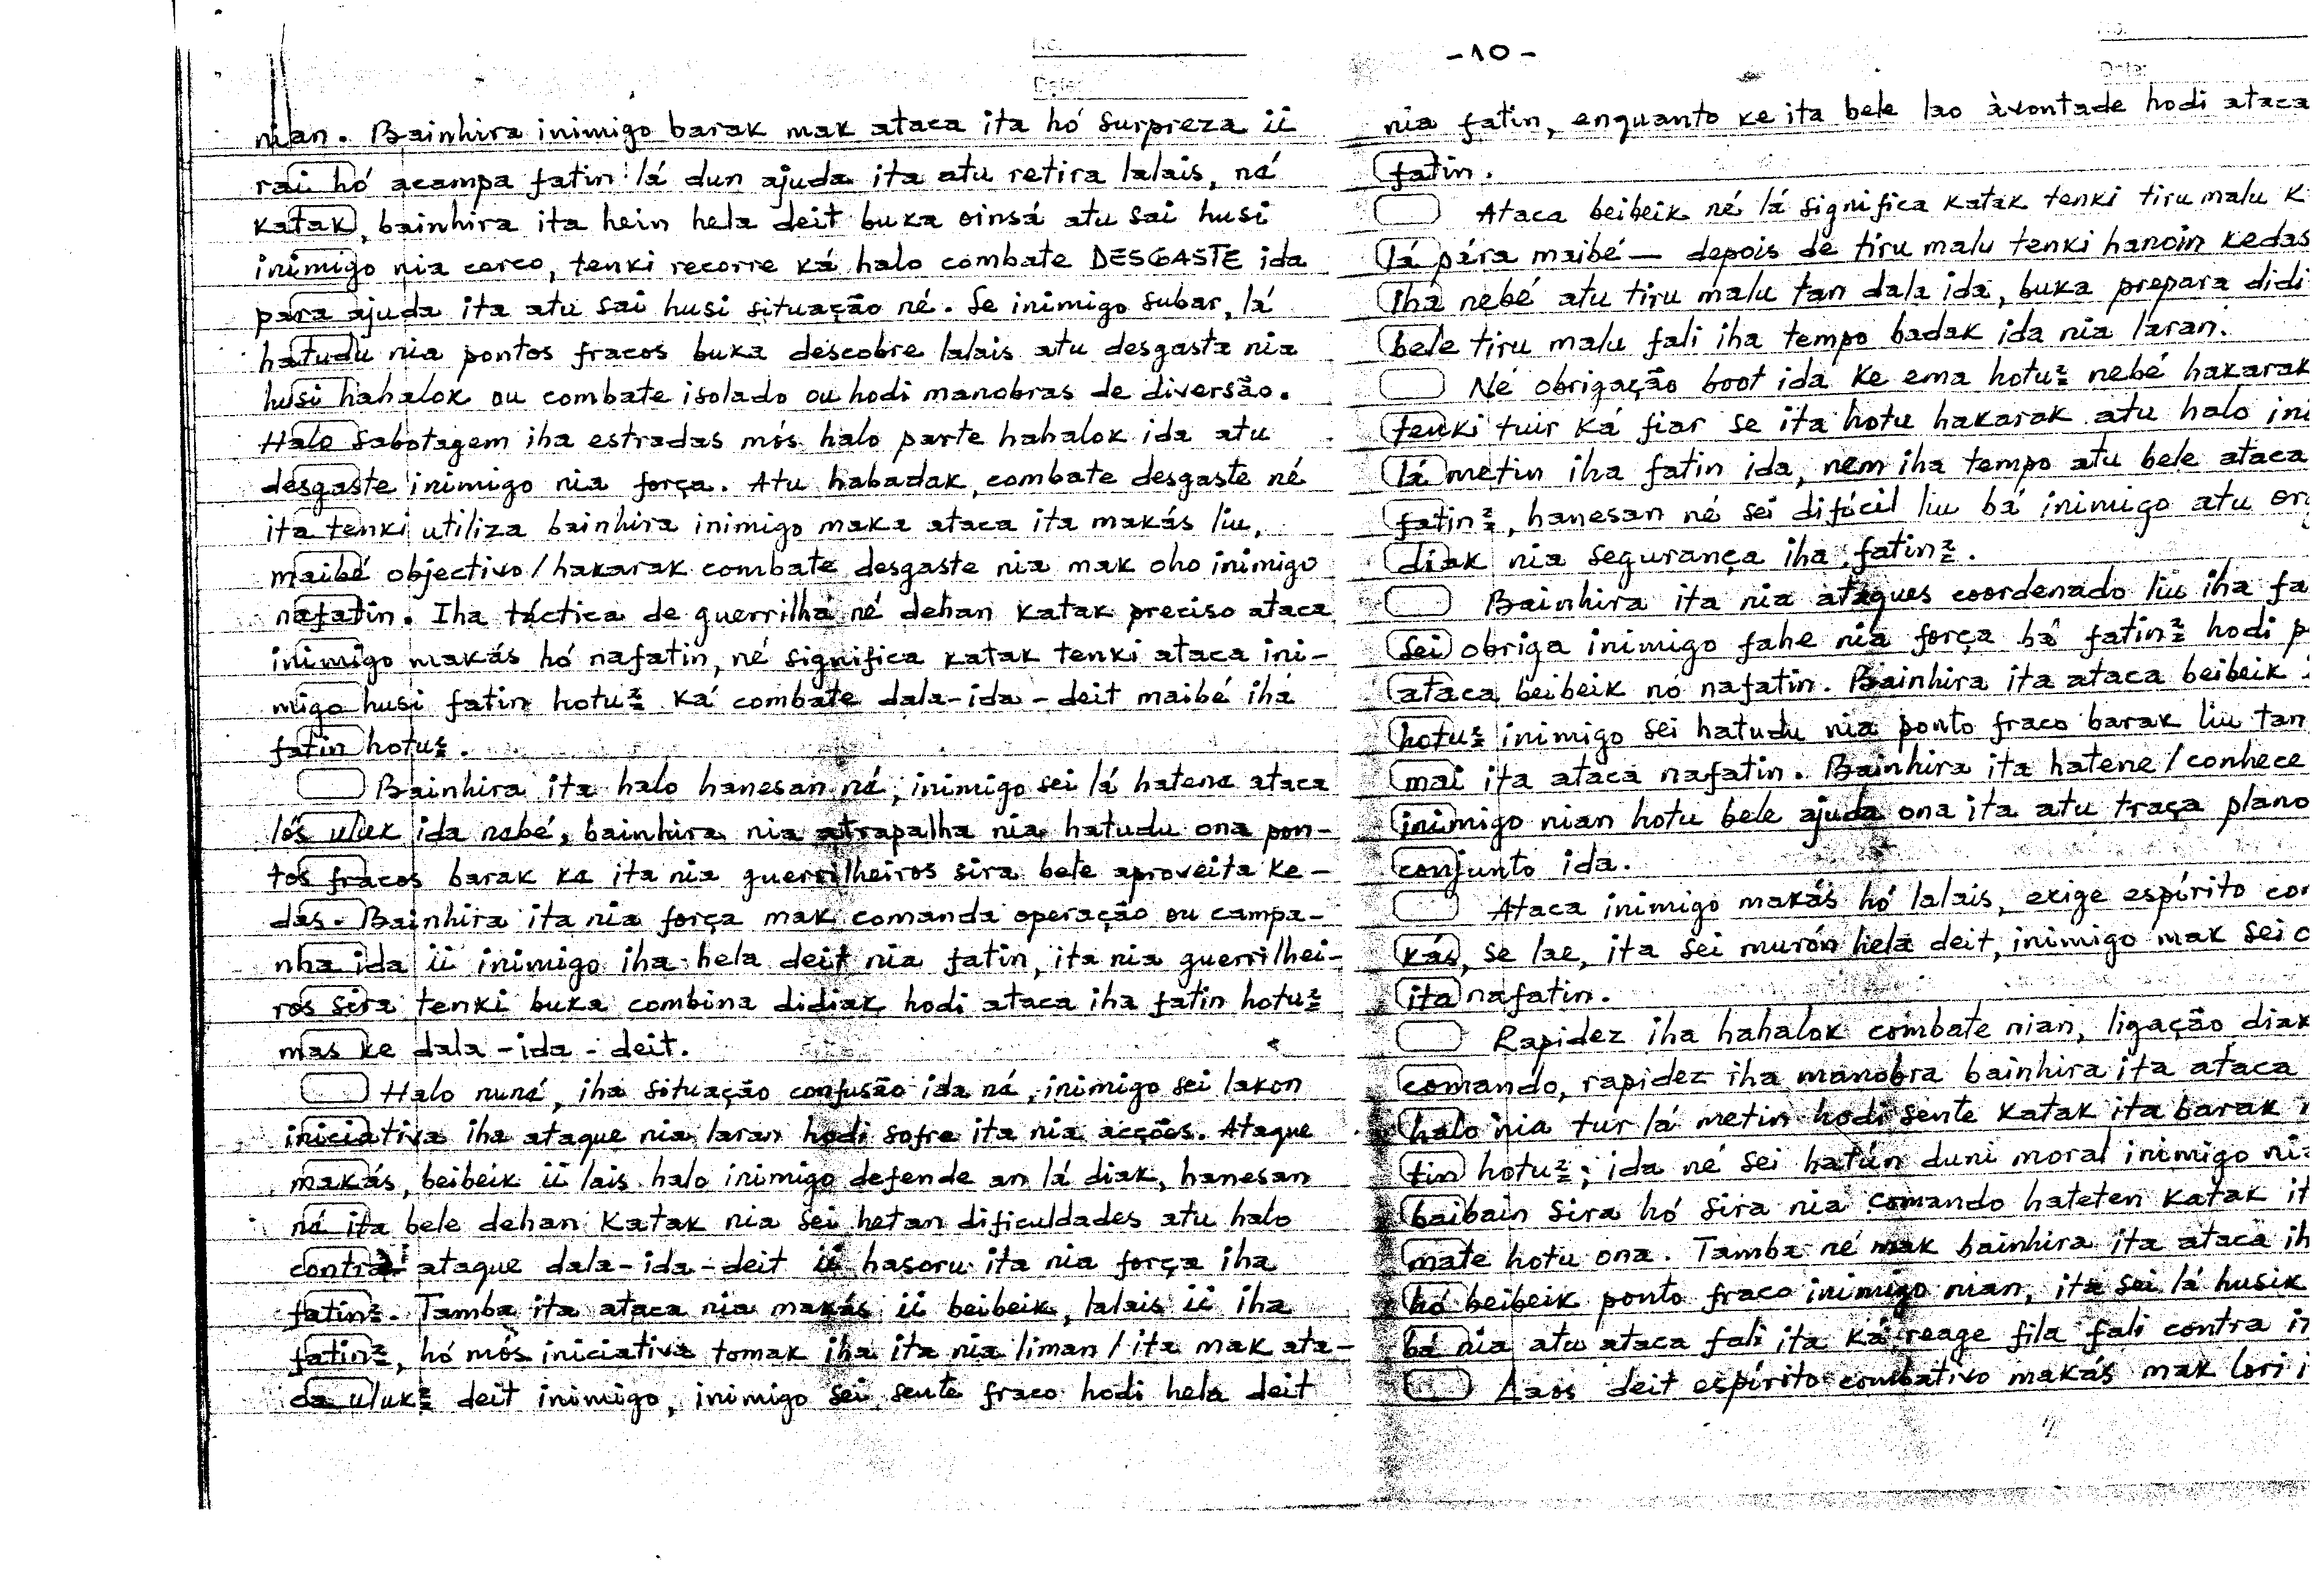 No.
Date:
nian. Bainhira inimigo barak mak ataca ita hó surpreza ii
rai hó acampa fatin lá dun ajuda ita atu retira lalais, né
katak, bainhira ita hein hela deit buka oinsá atu sai husi
inimigo nia cerco, tenki recorre ká halo combate DESGASTE ida
para ajuda ita atu sai husi situação né. Se inimigo subar, lá
hatudu nia pontos fracos buka descobre lalais atu desgasta nia
husi hahalok ou combate isolado ou hodi manobras de diversão.
Halo sabotagem iha estradas mós halo parte hahalok ida atu
desgaste inimigo nia força. Atu habadak, combate desgaste né
ita tenki utiliza bainhira inimigo maka ataca ita makás liu,
maibé objectivo/hakarak combate desgaste nia mak oho inimigo
nafatin. Iha táctica de guerrilha né dehan katak preciso ataca
inimigo makás hó nafatin, né significa katak tenki ataca ini-
migo husi fatin hotu² ká combate dala-ida-deit maibé iha
fatin hotu².
Bainhira ita halo hanesan né, inimigo sei lá hatene ataca
lós uluk ida nebé, bainhira nia atrapalha nia hatudu ona pon-
tos fracos barak ke ita nia guerrilheiros sira bele aproveita ke-
das. Bainhira ita nia força mak comanda operação ou campa-
nha ida ii inimigo iha hela deit nia fatin, ita nia guerrilhei-
ros sira tenki buka combina didiak hodi ataca iha fatin hotu²
mas ke dala-ida-deit.
Halo nuné, iha situação confusão ida né, inimigo sei lakon
iniciativa iha ataque nia laran hodi sofre ita nia acções. Ataque
makás, beibeik ii lais halo inimigo defende an lá diak, hanesan
né ita bele dehan katak nia sei hetan dificuldades atu halo
contra ataque dala-ida-deit ii hasoru ita nia força iha
fatin². Tamba ita ataca nia makás ii beibeik, lalais ii iha
fatin², hó mós iniciativa tomak iha ita nia liman/ita mak ata-
ca uluk² deit inimigo, inimigo sei sente fraco hodi hela deit
-10-
No.
Date:
nia fatin, enquanto ke ita bele lao àvontade hodi ataca
fatin.
Ataca beibeik né lá significa katak tenki tiru malu
lá pára maibé — depois de tiru malu tenki hanoin kedas
iha nebé atu tiru malu tan dala ida, buka prepara didi
bele tiru malu fali iha tempo badak ida nia laran.
Né obrigação boot ida ke ema hotu² nebé hakarak
tenki tuir ká fiar se ita hotu hakarak atu halo ini
lá metin iha fatin ida, nem iha tempo atu bele ataca
fatin², hanesan né sei difícil liu bá inimigo atu org
diak nia segurança iha fatin².
Bainhira ita nia ataques coordenado liu iha fa
sei obriga inimigo fahe nia força bá fatin² hodi p
ataca beibeik nó nafatin. Bainhira ita ataca beibeik
hotu² inimigo sei hatudu nia ponto fraco barak liu tan
mai ita ataca nafatin. Bainhira ita hatene/conhece
inimigo nian hotu bele ajuda ona ita atu traça plano
conjunto ida.
Ataca inimigo makás hó lalais, exige espírito com
kás, se lae, ita sei murón hela deit, inimigo mak sei
ita nafatin.
Rapidez iha hahalok combate nian, ligação diak
comando, rapidez iha manobra bainhira ita ataca
halo nia tur lá metin hodi sente katak ita barak
tin hotu²; ida né sei hatún duni moral inimigo nia
baibain sira hó sira nia comando hateten katak it
mate hotu ona. Tamba né mak bainhira ita ataca ih
hó beibeik ponto fraco inimigo nian, ita sei lá husik
bá nia atu ataca fali ita ká reage fila fali contra
Laos deit espírito combativo makás mak lori